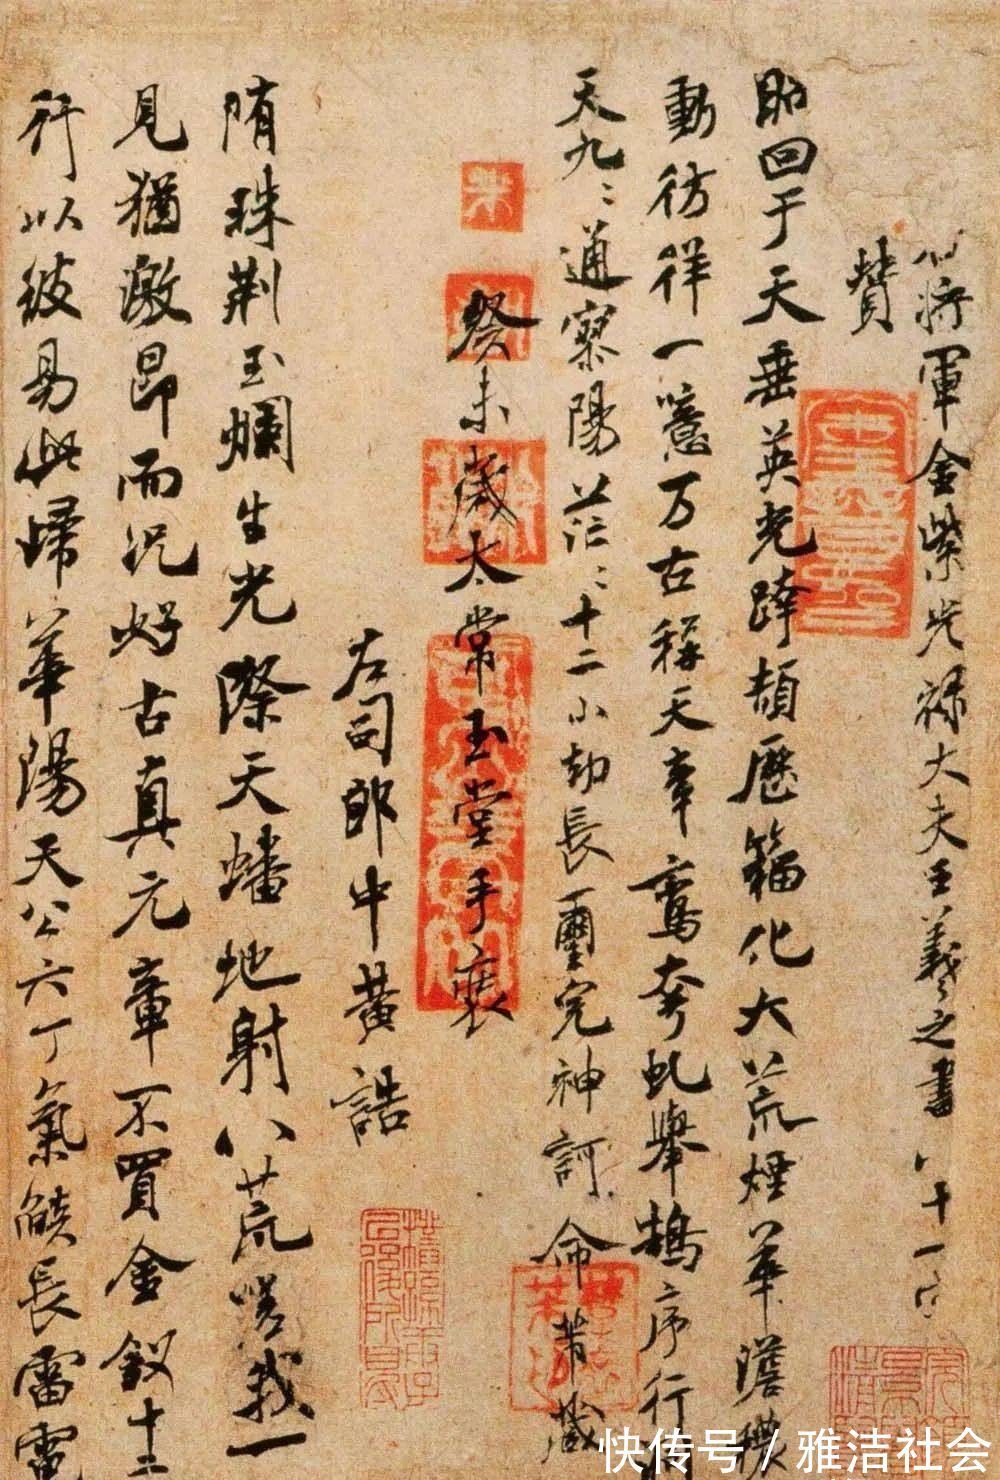 將軍金紫光祿大夫王羲之書八十一字
贊
昭回于天垂英光跨頡歷籀化大荒煙華澹穠
動彷徉一噫万古稱天章鸞夸虬舉鵠序行
天九〻通寥陽茫〻十二小劫長璽完神訶命芾藏
癸未歲太常玉堂手裝
左司郎中黃誥
隋珠荊玉爛生光際天蟠地射八荒嗟我一
見猶激昂而況好古真元章不買金釵十二
行以彼易此歸華陽天公六丁氣燄長雷電
快传号/雅洁社会